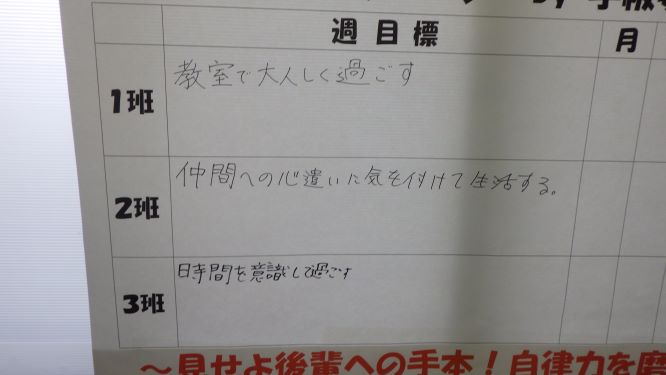 週目標
月
1班
教室で大人しく過ごす
2班
仲間への心遣いに気を付けて生活する。
3班
時間を意識して過ごす
～見せよ後輩への手本!自律力を磨